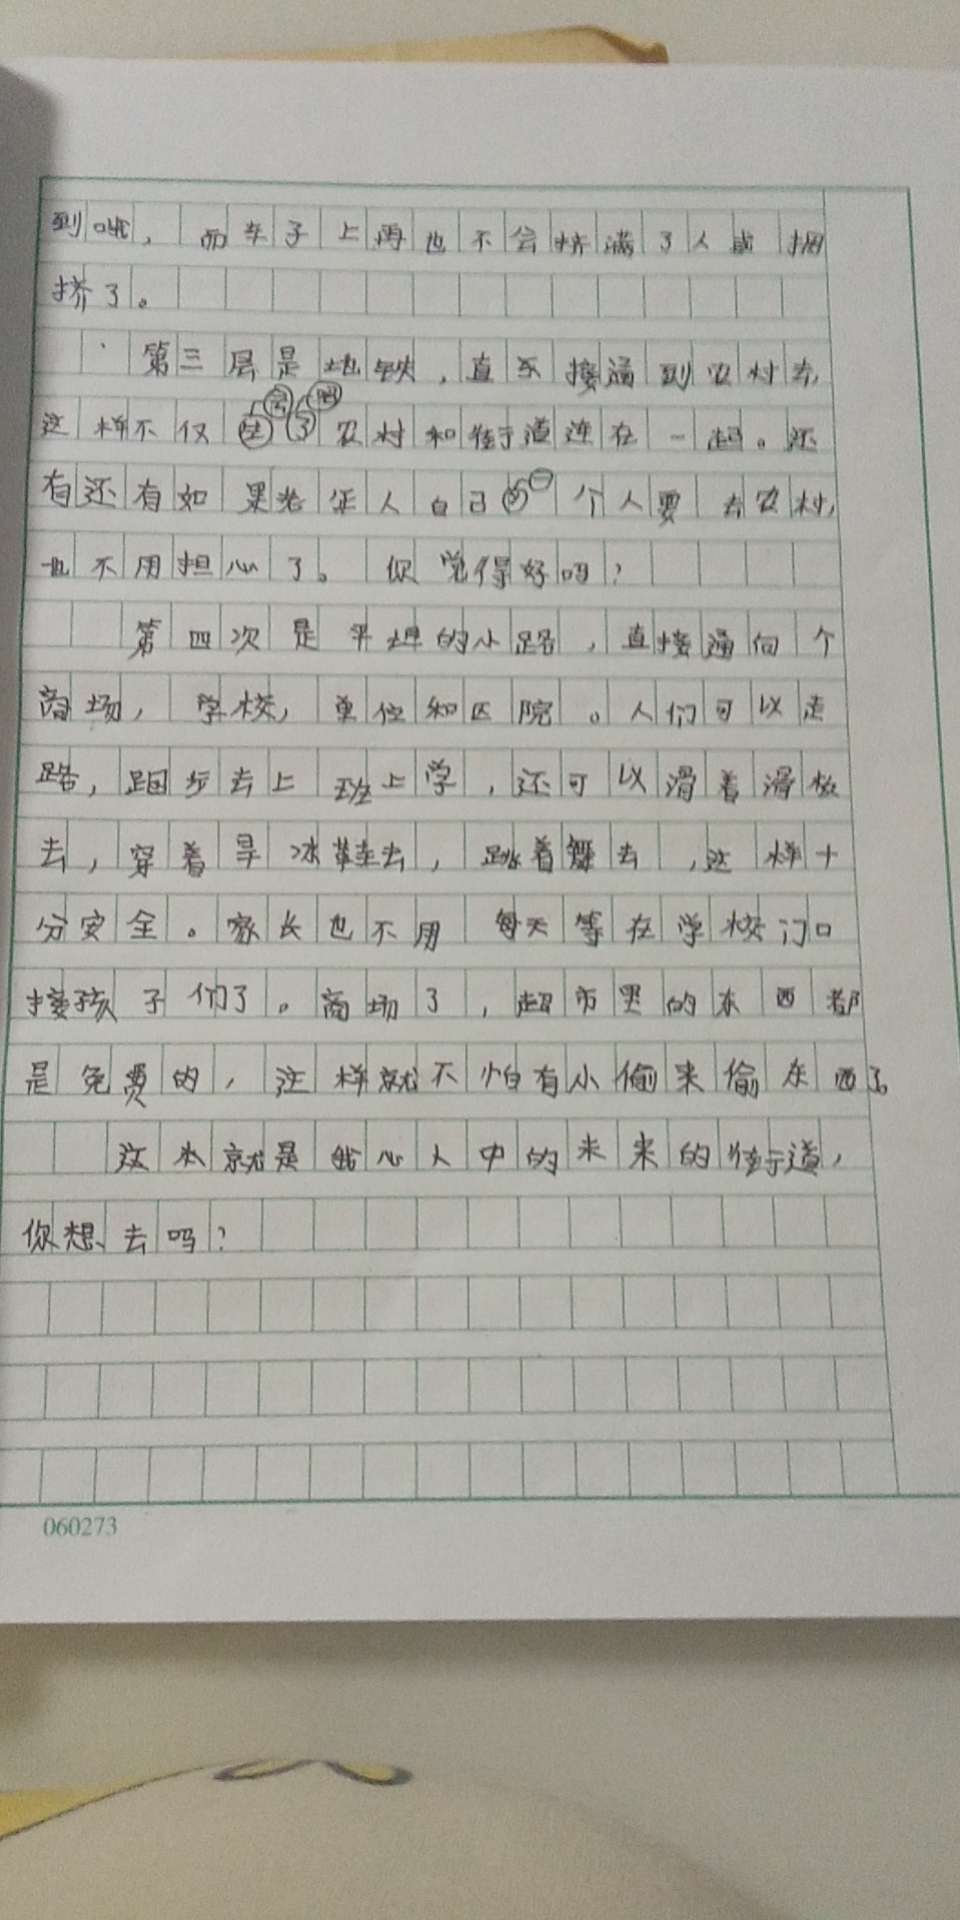 到哦，而车子上再也不会挤满了人或拥
挤了。
第三层是地铁，直系接通到农村去，
这样不仅会把农村和街道连在一起。还
有还有如果老年人自己的一个人要去农村，
也不用担心了。你觉得好吗？
第四次是平坦的小路，直接通向个
商场，学校，单位和医院。人们可以走
路，跑步去上班上学，还可以滑着滑板
去，穿着旱冰鞋去，跳着舞去，这样十
分安全。家长也不用每天等在学校门口
接孩子们了。商场了，超市里的东西都
是免费的，这样就不怕有小偷来偷东西了。
这本就是我心人中的未来的街道，
你想去吗？
060273